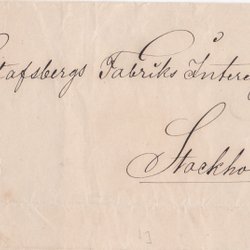 tafsbergs Fabriks Intere
Stockho